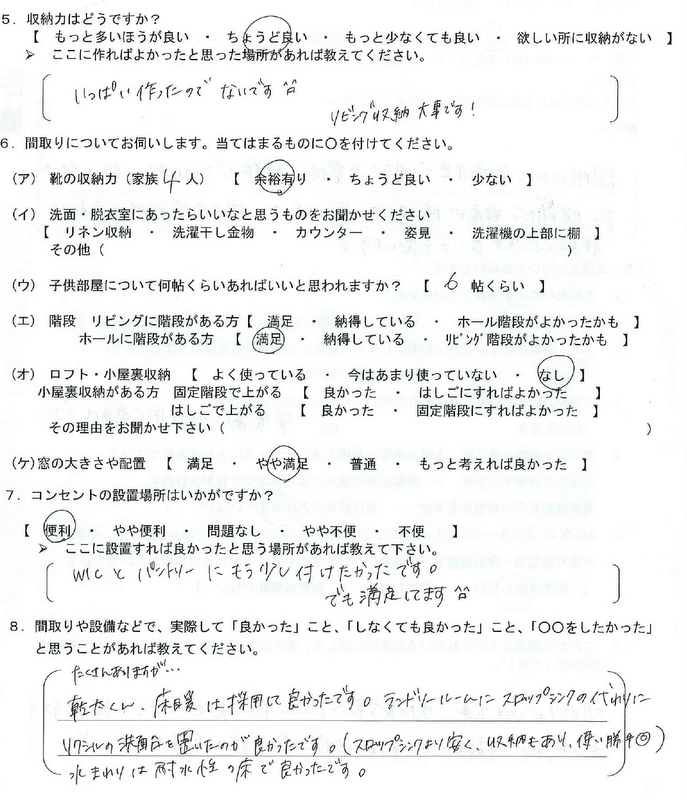 ５．収納力はどうですか？
【　もっと多いほうが良い　・　ちょうど良い　・　もっと少なくても良い　・　欲しい所に収納がない　】
➢　ここに作ればよかったと思った場所があれば教えてください。
いっぱい作ったので ないです ^^
リビング収納 大事です！
６．間取りについてお伺いします。当てはまるものに〇を付けてください。
（ア）　靴の収納力（家族 4 人）　【　余裕有り　・　ちょうど良い　・　少ない　】
（イ）　洗面・脱衣室にあったらいいなと思うものをお聞かせください
【　リネン収納　・　洗濯干し金物　・　カウンター　・　姿見　・　洗濯機の上部に棚　】
その他（　　　　　　　　　　　　　　　　　　）
（ウ）　子供部屋について何帖くらいあればいいと思われますか？　【　6　帖くらい　】
（エ）　階段　リビングに階段がある方【　満足　・　納得している　・　ホール階段がよかったかも　】
ホールに階段がある方　【　満足　・　納得している　・　リビング階段がよかったかも　】
（オ）　ロフト・小屋裏収納　【　よく使っている　・　今はあまり使っていない　・　なし　】
小屋裏収納がある方　固定階段で上がる　【　良かった　・　はしごにすればよかった　】
はしごで上がる　【　良かった　・　固定階段にすればよかった　】
その理由をお聞かせ下さい（　　　　　　　　　　　　　　　　　　）
（ケ）窓の大きさや配置　【　満足　・　やや満足　・　普通　・　もっと考えれば良かった　】
７．コンセントの設置場所はいかがですか？
【　便利　・　やや便利　・　問題なし　・　やや不便　・　不便　】
➢　ここに設置すれば良かったと思う場所があれば教えて下さい。
WICとパントリーにもう少し付けたかったです。
でも満足してます ^^
８．間取りや設備などで、実際して「良かった」こと、「しなくても良かった」こと、「〇〇をしたかった」
と思うことがあれば教えてください。
たくさんありますが…
乾太くん、床暖は採用して良かったです。ランドリールームにスロップシンクの代わりに
リクシルの洗面台を置いたのが良かったです。（スロップシンクより安く、収納もあり、使い勝手◎）
水まわりは耐水性の床で良かったです。